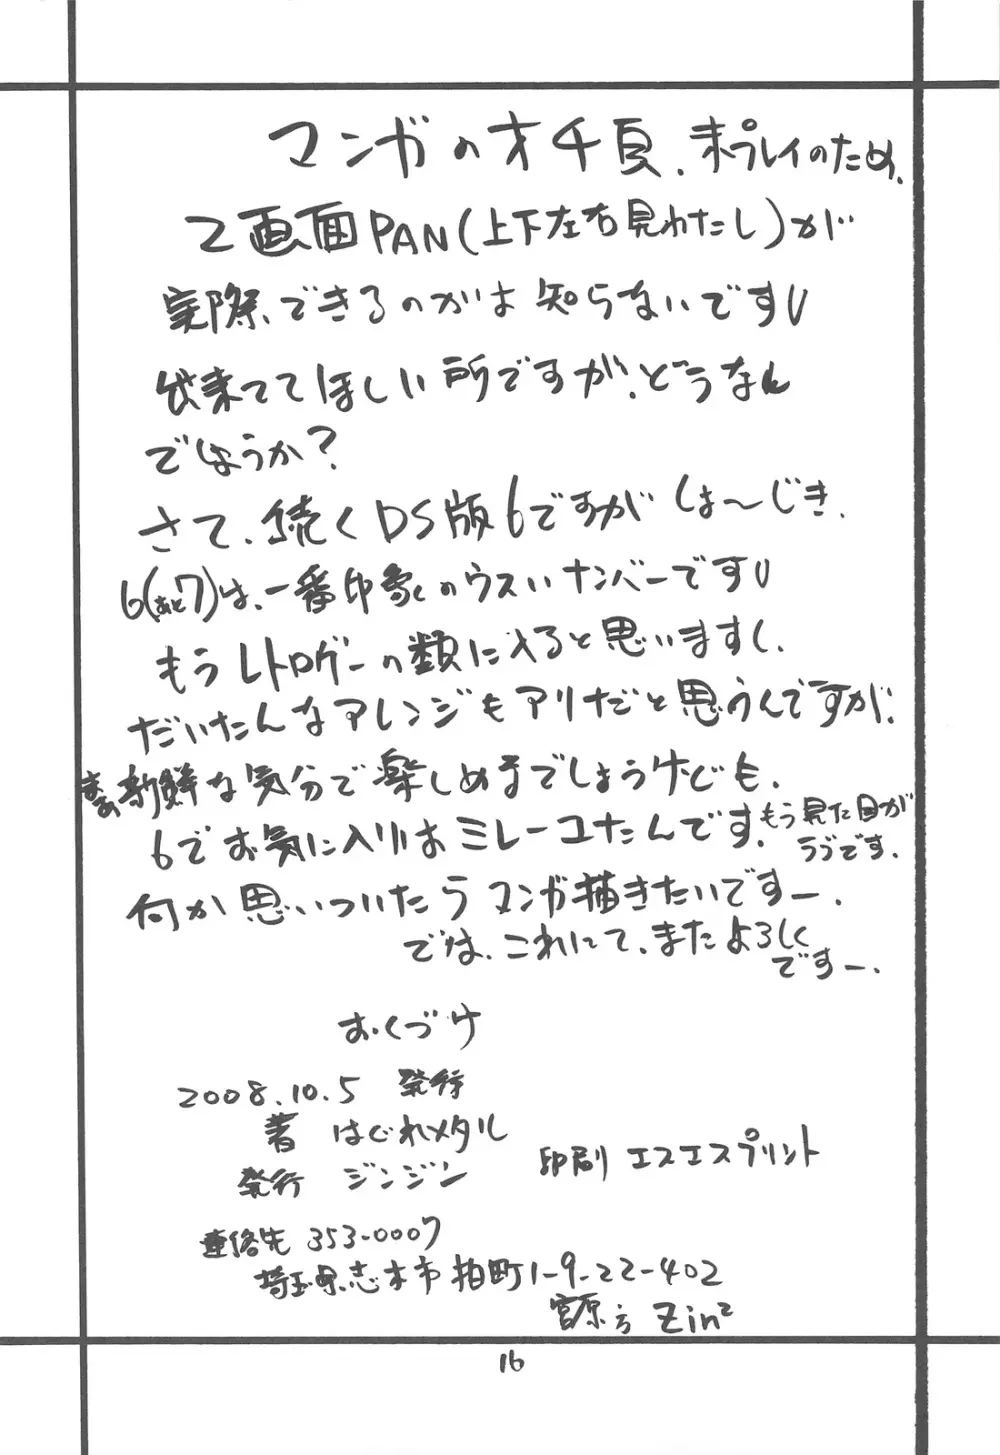 マンガのオチ頁、未プレイのため、
2画面PAN(上下左右見わたし)が
実際、できるのかは知らないですU
出来ててほしい所ですが、どうなん
でしょうか?
さて、続くDS版6ですが しょ〜じき、
6(あと7)は、一番印象のウスいナンバーですU
もうレトロゲーの類に入ると思いますし、
だいたんなアレンジもアリだと思うんですが、
まあ新鮮な気分で楽しめるでしょうけども、
6でお気に入りはミレーユたんです。もう見た目が
ラブです。
何か思いついたらマンガ描きたいですー、
では、これにて、またよろしく
ですー、
おくづけ
2008.10.5 発行
著 はぐれメタル
発行 ジンジン
印刷 エスエスプリント
連絡先 353-0007
埼玉県志木市柏町1-9-22-402
宮原方 Zin²
16